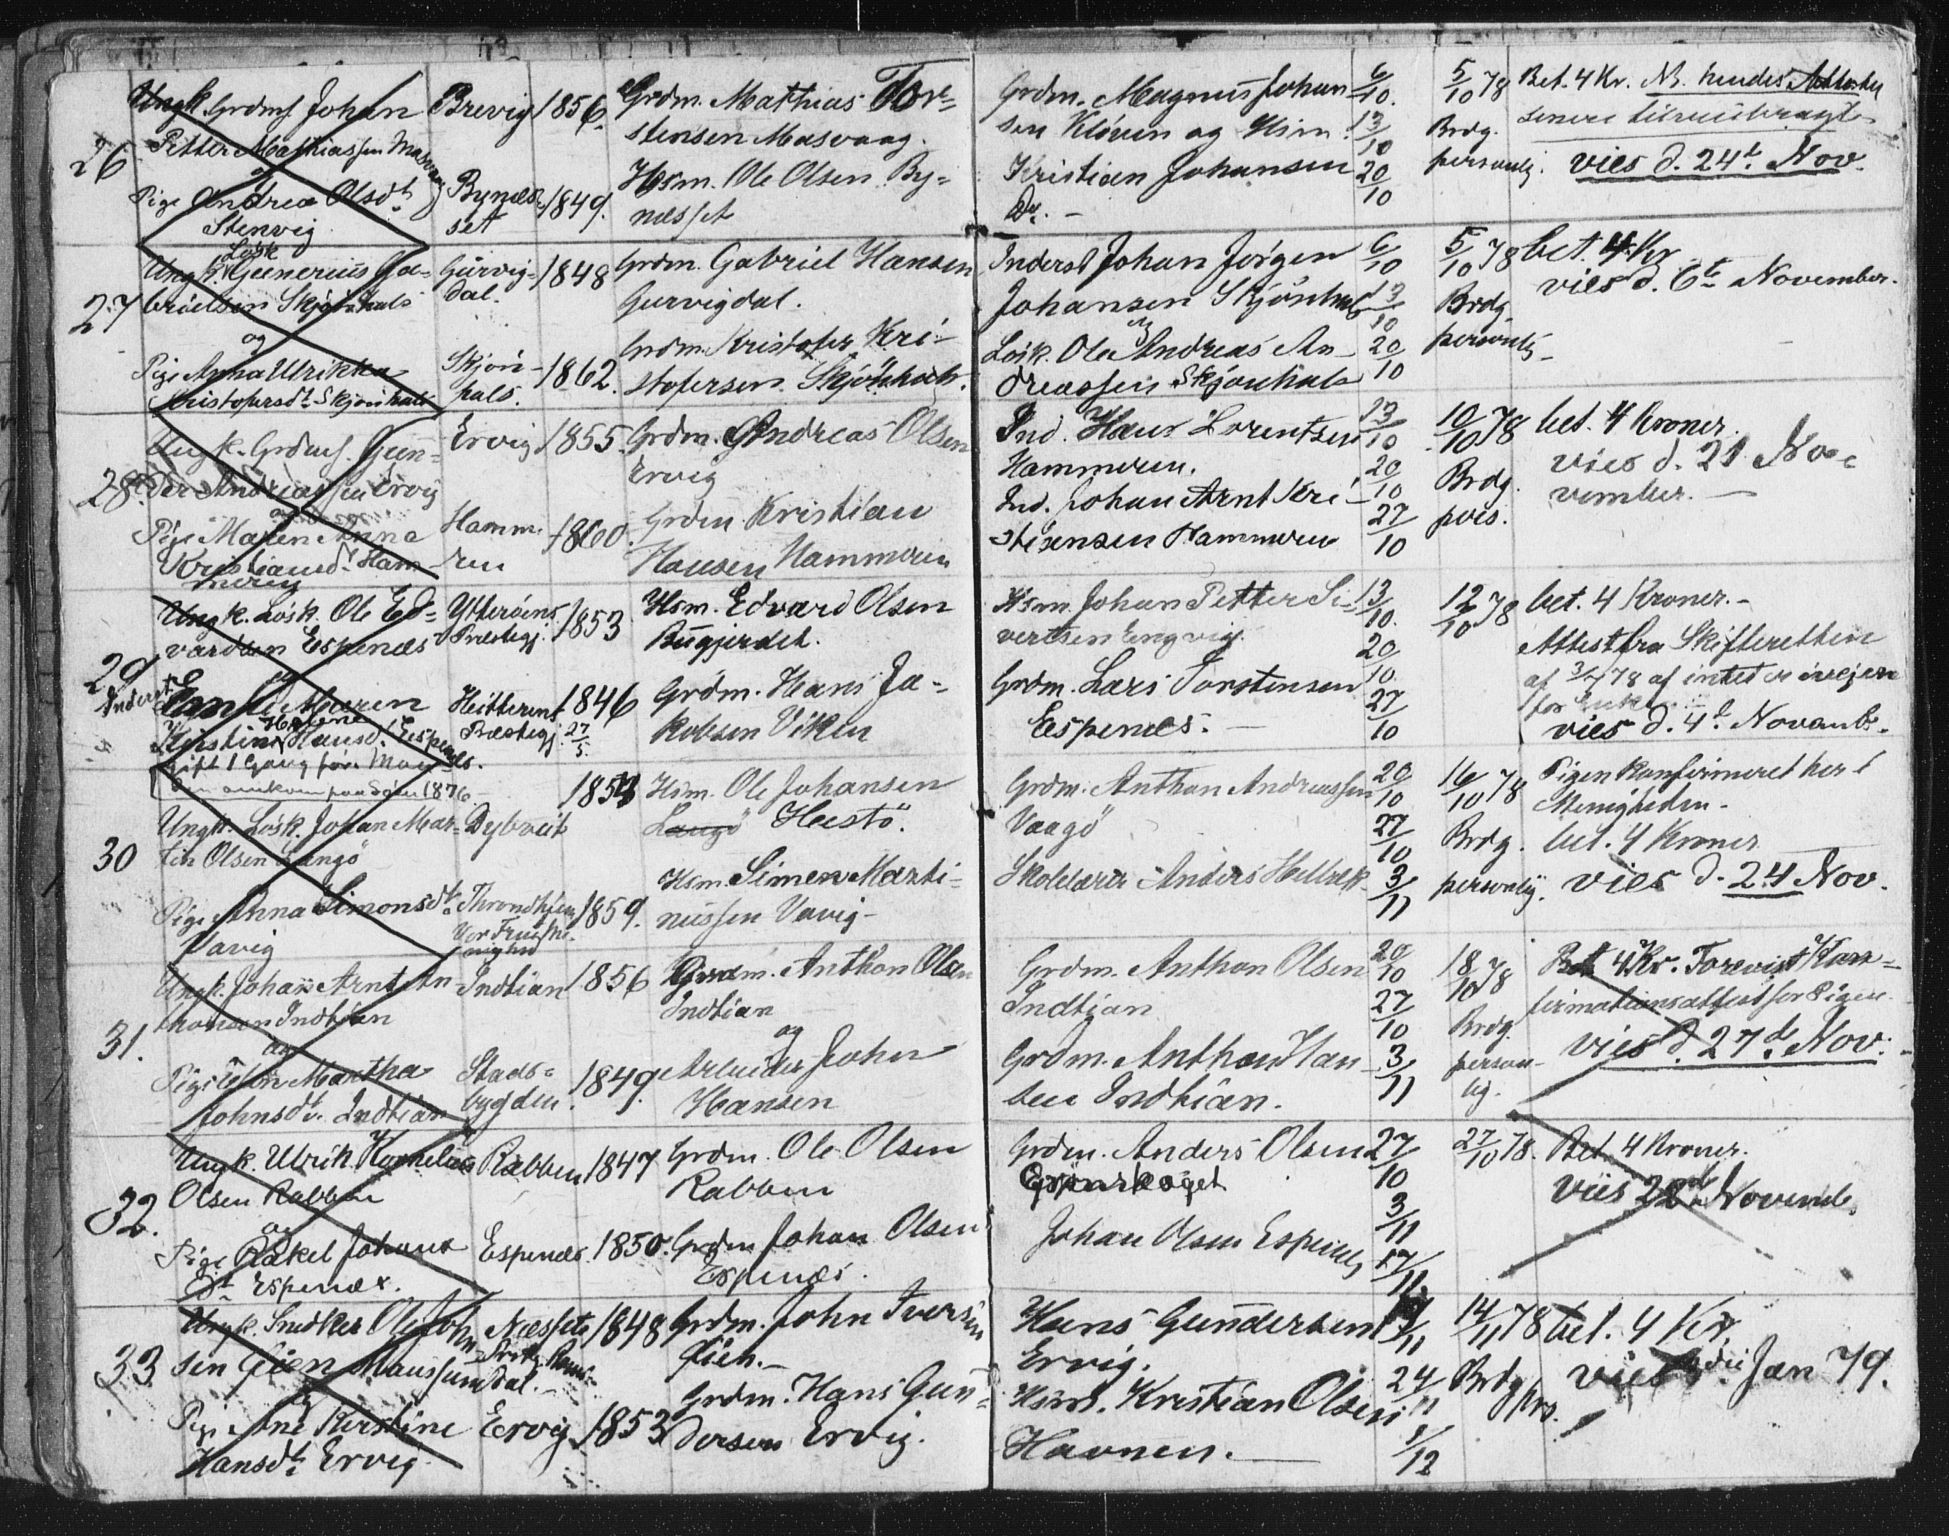 26
Ungk. Grdmf. Johan
Petter Mathiassen Masvaag
og
Pige Andrea Olsdt.
Stenvig
Brevig 1856.
Bynæs-
set 1849.
Grdm. Mathias Tor-
stensen Masvaag.
Hsm. Ole Olsen By-
næsset
Grdm. Magnus Johan
sen Kløven og Hsm.
Kristian Johansen
Do. -
6/10.
13/10
20/10
5/10 78
Brdg.
personlig.
Bet. 4 Kr. NB. hendes Attester
senere
vies d. 24t. Nov.
27
Ungk. Løsk. Gunerius Ga-
brielsen Skjønhals
og
Pige Anna Ulrikka
Kristofersdt. Skjønhals
Gurvig-
dal. 1848
Skjøn-
hals. 1862.
Grdm. Gabriel Hansen
Gurvigdal.
Grdm. Kristofer Kri-
stofersen Skjønhals.
Inderst Johan Jørgen
Johansen Skjønhals
og
Løsk. Ole Andreas An-
dreassen Skjønhals
6/10
13/10
20/10
5/10 78
Brdg.
personlig
bet. 4 Kr
vies d. 6te November.
28.
Ungk. Grdmf. Gun-
der Andreassen Ervig
og
Pige Maren Anna
Kristiansdt. Ham-
meren
Ervig 1855.
Hamm-
ren 1860.
Grdm. Andreas Olsen
Ervig
Grdm Kristian
Hansen Hammeren
Ind. Hans Lorentsen
Hammeren.
Ind. Johan Arnt Kri-
stiansen Hammeren
13/10
20/10
27/10
10/10 78
Brdg.
pers.
bet. 4 Kroner.
vies d. 21 No-
vember. -
29
Ungk. Løsk. Ole Ed-
vardsen Espenæs
Inderst
Enke Maren
Helene
Kirstine Hansd. Espenæs.
gift 1 Gang før. Man
1876
Ytterøens
Præstegj. 1853
Hitterens
Præstegj. 1846
27/5.
Hsm. Edvard Olsen
Bugjerdet.
Grdm. Hans Ja-
kobsen Viken
Hsm. Johan Petter Si-
vertsen Engvig
Grdm. Lars Torstensen
Espenæs. -
13/10.
20/10
27/10
12/10 78
bet. 4 Kroner. -
Attest fra Skifteretten
af 3/7 78 af intet er ivejen
for Enken
vies d. 4de Novemb.
30
Ungk. Løsk. Johan Mar-
tin Olsen Langø
Pige Anna Simonsdt.
Vavig
Dybvik
1853
Throndhjem
Vor Frue Me-
nighed 1859.
Hsm. Ole Johansen
Langø Hestø.
Hsm. Simen Marti-
nussen Vavig -
Grdm. Anthon Andreassen
Vaagø
Skolelærer Anders Helbek
20/10
27/10
3/11
16/10 78
Brdg.
personlig.
Pigen Konfirmeret her i
Menigheden.
bet. 4 Kroner
vies d. 24 Nov.
31.
Ungk. Johan Arnt An-
thonsen Indtian
og
Pige Martha
Johnsdt. Indtian
Indtian 1856
Stads-
bygden. 1849.
Grdm. Anthon Olsen
Indtian
og
Arbeider John
Hansen
Grdm. Anthon Olsen
Indtian
Grdm. Anthon Han
sen Indtian.
20/10
27/10
3/11
18/10 78
Brdg.
person-
lig.
Bet. 4 Kr. Forevist Kon-
firmationsattest for Pigen.
vies d. 27de Nov.
32.
Ungk. Ulrik Kornelius
Olsen Rabben
og
Pige Rakel Johans
dt. Espenæs.
Rabben 1847
Espenæs. 1850.
Grdm. Ole Olsen
Rabben
Grdm Johan Olsen
Espenæs.
Grdm. Anders Olsen
Grønskaget
Johan Olsen Espenæs
27/10
3/11
17/11
27/10 78.
Bet. 4 Kroner.
viis 28d Novemb.
33
Ungk. Snedker Ole John
sen
og
Pige Ane Kirstine
Hansdt. Ervig
Næssets
Prstgj. Roms-
dal. - 1848
Ervig 1853
Grdm. John Iversen
Grdm. Hans Gun-
dersen Ervig.
Hans Gundersen
Ervig.
Hsm. Kristian Olsen
Havnen. -
17/11
24/11
1/12
14/11 78
Brdg
prs.
bet. 4 Kr.
vies Jan 79.